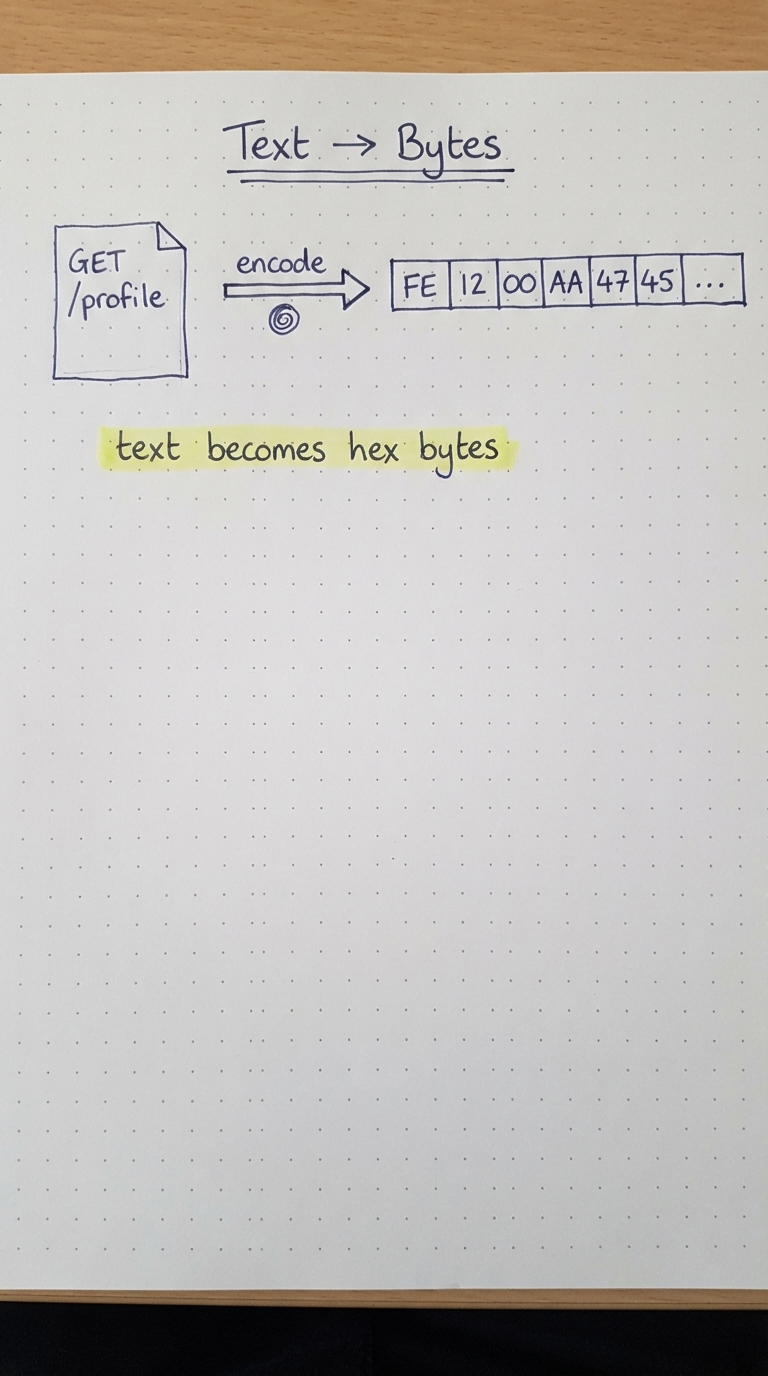 Text → Bytes
GET
/profile
encode
FE 12 00 AA 47 45 ...
text becomes hex bytes